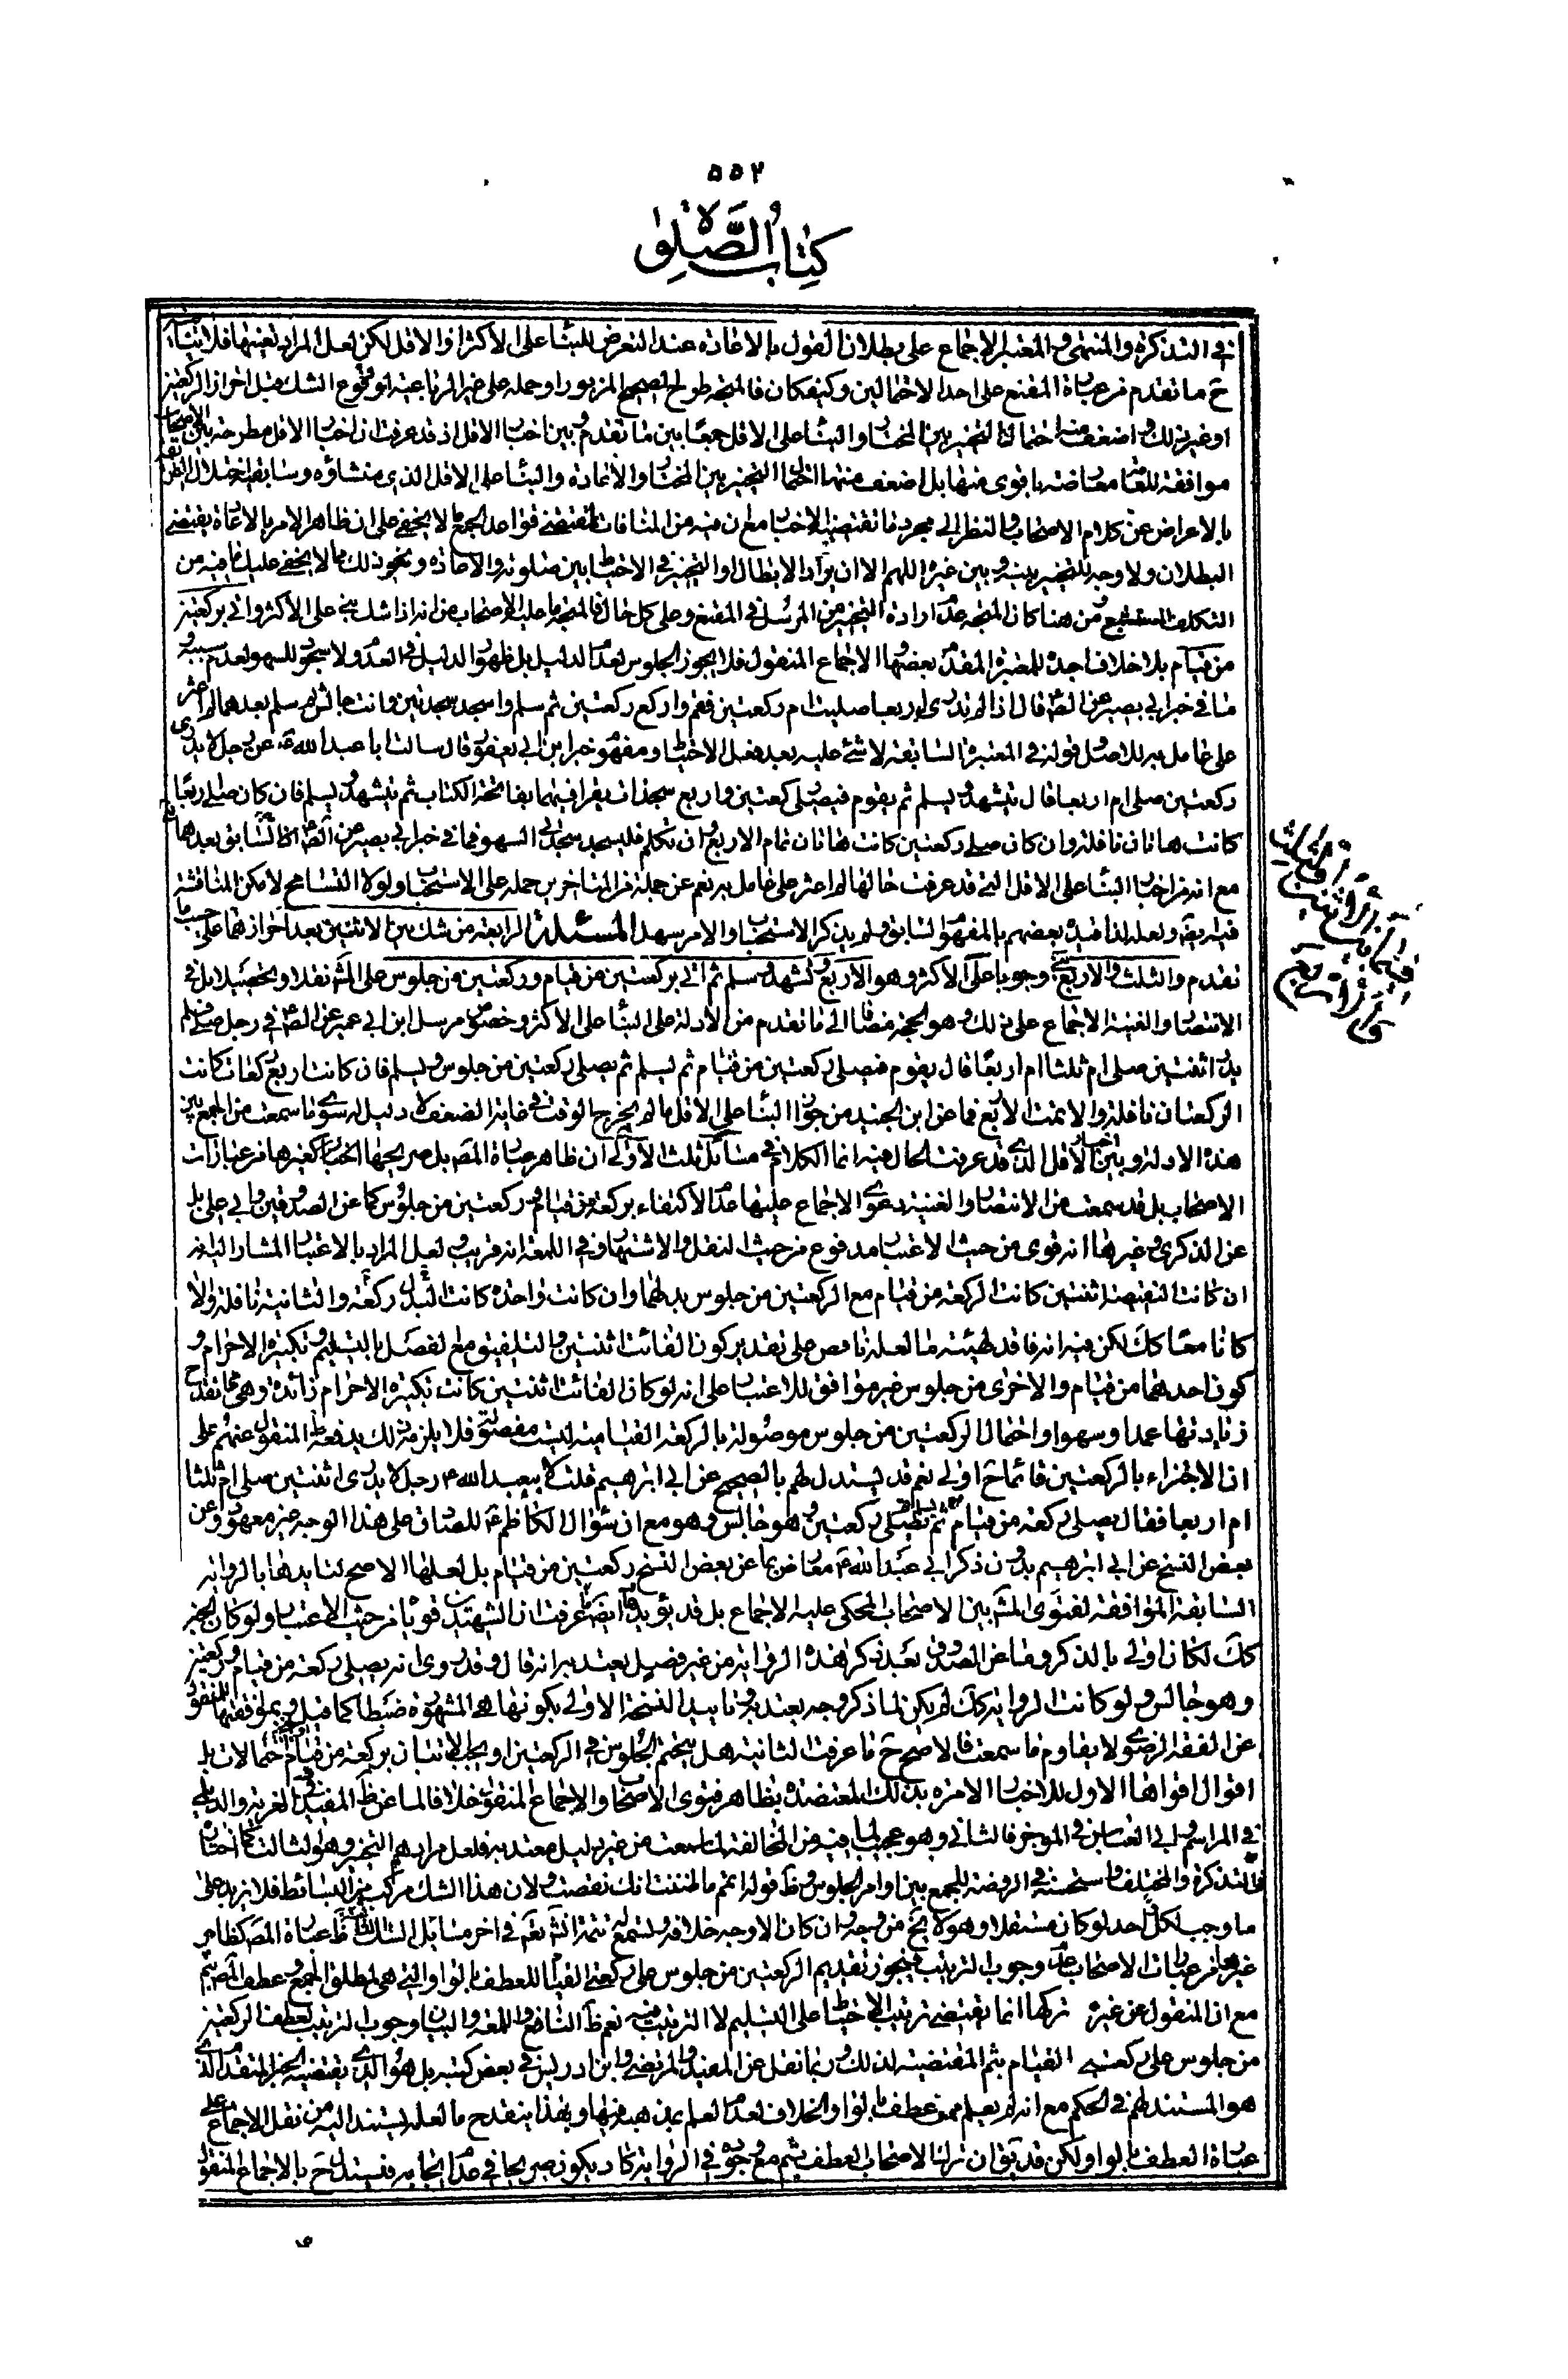 ٥٥٢
كتاب الصلوة
في التذكرة والمنتهى والمعتبر الاجماع على بطلان القول بالاعادة عند التعرض للبناء على الاكثر او الاقل لكن لعل المراد تعينها فلا
ح ما تقدم من عبارة المقنع على احد الاحتمالين وكيفكان فالمتجه طرح الصحيح المزبور او حمله على غير الرباعية او وقوع الشك قبل احراز الركعتين
او غير ذلك واضعف منه احتمال التخيير بين المختار والبناء على الاقل جمعا بين ما تقدم وبين اخبار الاقل اذ قد عرفت ان اخبار الاقل مطرحة بين الاصحاب
موافقة للعامة معارضة باقوى منها بل اضعف منهما احتمال التخيير بين المختار والاعادة والبناء على الاقل الذي منشاؤه وسابقه اختلال
بالاعراض عن كلام الاصحاب والنظر الى مجرد ما تقتضيه الاخبار مع ان فيه من المنافات لمقتضى قواعد الجمع ما لا يخفى على ان ظاهر الامر بالاعادة يقتضي
البطلان ولا وجه للتخيير بينه وبين غيره اللهم الا ان يراد الابطال او التخيير في الاحتياط بين صلوته والاعادة ونحو ذلك مما لا يخفى عليك ما فيه من
التكلف المستشبع ومن هنا كان المتجه عدم ارادة التخيير من المرسل في المقنع وعلى كل حال فالمتجه ما عليه الاصحاب من انه اذا شك بنى على الاكثر واتى بركعتين
من قيام بلا خلاف اجده للمعتبرة المتقدم بعضها والاجماع المنقول فلا يجوز الجلوس لعدم الدليل بل ظهور الدليل في العدم ولا سجود للسهو لعدم سببه
فما في خبر ابي بصير عن الصادق قال اذا لم تدر اربعا صليت ام ركعتين فقم واركع ركعتين ثم سلم واسجد سجدتين وانت جالس ثم سلم بعدهما لم اعثر
على عامل به للاصل وقوله في المعتبرة السابقة لا شيء عليه بعد فعل الاحتياط ومفهوم خبر ابن ابي يعفور قال سالت ابا عبد الله ع عن رجل لا يدري
ركعتين صلى ام اربعا قال يتشهد ويسلم ثم يقوم فيصلي ركعتين واربع سجدات يقرا فيهما بفاتحة الكتاب ثم يتشهد ويسلم فان كان صلى اربعا
كانت هاتان نافلة وان كان صلى ركعتين كانت هاتان تمام الاربع وان تكلم فليسجد سجدتي السهو فما في خبر ابي بصير عن السابق بعدها
مع انه من اخبار البناء على الاقل التي قد عرفت حالها لم اعثر على عامل به نعم عن جملة من المتاخرين حمله على الاستحباب ولولا التسامح لامكن المناقشة
فيه بقه ولعله لذا قيد بعضهم بالمفهوم السابق ولم يذكر الاستحباب والامر سهل المسئلة الرابعة من شك بين الاثنتين بعد احرازهما على حسب ما
تقدم والثلث والاربع بنى وجوبا على الاكثر وهو الاربع وتشهد وسلم ثم اتى بركعتين من قيام وركعتين من جلوس على المش نقلا وتحصيلا بل في
الانتصار والغنية الاجماع على ذلك وهو الحجة مضافا الى ما تقدم من الادلة على البناء على الاكثر وخصوص مرسل ابن ابي عمير عن الصادق في رجل صلى فلم
يدر اثنتين صلى ام ثلثا ام اربعا قال يقوم فيصلي ركعتين من قيام ثم يسلم ثم يصلي ركعتين من جلوس ويسلم فان كانت اربع ركعات كانت
الركعتان نافلة والا تمت الاربع فما عن ابن الجنيد من جواز البناء على الاقل ما لم يخرج الوقت في غاية الضعف لا دليل له سوى ما سمعت من الجمع بين
هذه الادلة وبين اخبار الاقل الذي قد عرفت الحال فيه انما الكلام في مسائل ثلث الاولى ان ظاهر عبارة المص بل صريحها الخيار كغيرها من عبارات
الاصحاب بل قد سمعت من الانتصار والغنية دعوى الاجماع عليها عدم الاكتفاء بركعة من قيام وركعتين من جلوس كما عن الصدوقين وابي علي بل
عن الذكرى وغيرها انه قوي من حيث الاعتبار مدفوع من حيث النقل والاشتهار وفي اللمعة انه قريب ولعل المراد بالاعتبار المشار اليه انه
ان كانت الناقصة اثنتين كانت الركعة من قيام مع الركعتين من جلوس بدلهما وان كانت واحدة كانت البدل ركعة والثانية نافلة والا
كانا معا كك لكن فيه انه فاقد لهيئته ما لعله ناقص على تقدير كون الفائت اثنتين والتلفيق مع الفصل بالتسليم وتكبيرة الاحرام و
كون احدهما من قيام والاخرى من جلوس غير موافق للاعتبار على انه لو كان الفائت اثنتين كانت تكبيرة الاحرام زائدة وهي مما تقدح
زيادتها عمدا وسهوا واحتمال الركعتين من جلوس موصولة بالركعة القيامية ليست مفصولة فلا يلزم ذلك يدفعه المنقول عنهم على
ان الاجتزاء بالركعتين قائما ح اولى نعم قد يستدل لهم بالصحيح عن ابي ابرهيم قلت لابي عبد الله ع رجل لا يدري اثنتين صلى ام ثلثا
ام اربعا فقال يصلي ركعة من قيام ثم يسلم ثم يصلي ركعتين وهو جالس وهو مع ان سؤال الكاظم ع للصادق على هذا الوجه غير معهود وعن
بعض النسخ عن ابي ابرهيم بدون ذكر ابي عبد الله ع معارض بما عن بعض النسخ ركعتين من قيام بل لعلها الاصح لتايدها بالرواية
السابقة الموافقة لفتوى المش بين الاصحاب المحكي عليه الاجماع بل قد يؤيدها ايضا ما عرفت ان الشهيدين قويا من حيث الاعتبار ولو كان الخبر
كك لكان اولى بالذكر وما عن الصدوق بعد ذكر هذه الرواية من غير فصل يعتد به انه قال وقد روي انه يصلي ركعة من قيام وركعتين
وهو جالس ولو كانت الرواية كك لم يكن لما ذكر وجه يعتد به وتاييد النسخة الاولى بكونها هي المشهورة ضبطا كما قيل وبموافقتها المنقول
عن الفقه الرضوي لا يقاوم ما سمعت فالاصح ح ما عرفت الثانية هل يتحتم الجلوس في الركعتين او يجب الاتيان بركعة من قيام احتمالات بل
اقوال اقواها الاول للاخبار الامرة بذلك المعتضدة بظاهر فتوى الاصحاب والاجماع المنقول خلافا لما عن ظ المفيد في الغرية والديلمي
في المراسم وابي العباس في الموجز فالثاني وهو عجيب لما فيه من المخالفة لما سمعت من غير دليل معتد به فلعل مرادهم التخيير وهو الثالث كما اختاره
في التذكرة والمختلف واستحسنه في الروضة للجمع بين اوامر الجلوس وظ قوله اتم ما ظننت انك نقصت ولان هذا الشك مركب من البسائط فلا يزيد على
ما وجب لكل احد لو كان مستقلا وهو لا يخ من وجه وان كان الاوجه خلافه ولتسمع له تتمة انش تعم في اخر مسائل الشك الثالثة ظ عبارة المص كظاهر
غيرها من عبارات الاصحاب عدم وجوب الترتيب فيجوز تقديم الركعتين من جلوس على ركعتي القيام للعطف بالواو التي هي لمطلق الجمع وعطف المص بثم
مع ان المنقول عن غيره تركها انما يقتضي ترتيب الاحتياط على التسليم لا الترتيب فيه نعم ظ النافع واللمعة والبيان وجوب الترتيب لعطف الركعتين
من جلوس على ركعتي القيام بثم المقتضية لذلك وربما نقل عن المفيد والمرتضى وابن ادريس في بعض كتبه بل هو الذي يقتضيه الخبر المتقدم الذي
هو المستند لهم في الحكم مع انه لم يعلم ممن عطف بالواو الخلاف لعدم العلم بمذهبه فيها وبهذا ينقدح ما لعله يستند اليه من نقل الاجماع على
عبارة العطف بالواو ولكن قد يق ان ترك الاصحاب العطف بثم مع وجوده في الرواية كاد يكون صريحا في عدم ايجابه فيستدل ح بالاجماع المنقول